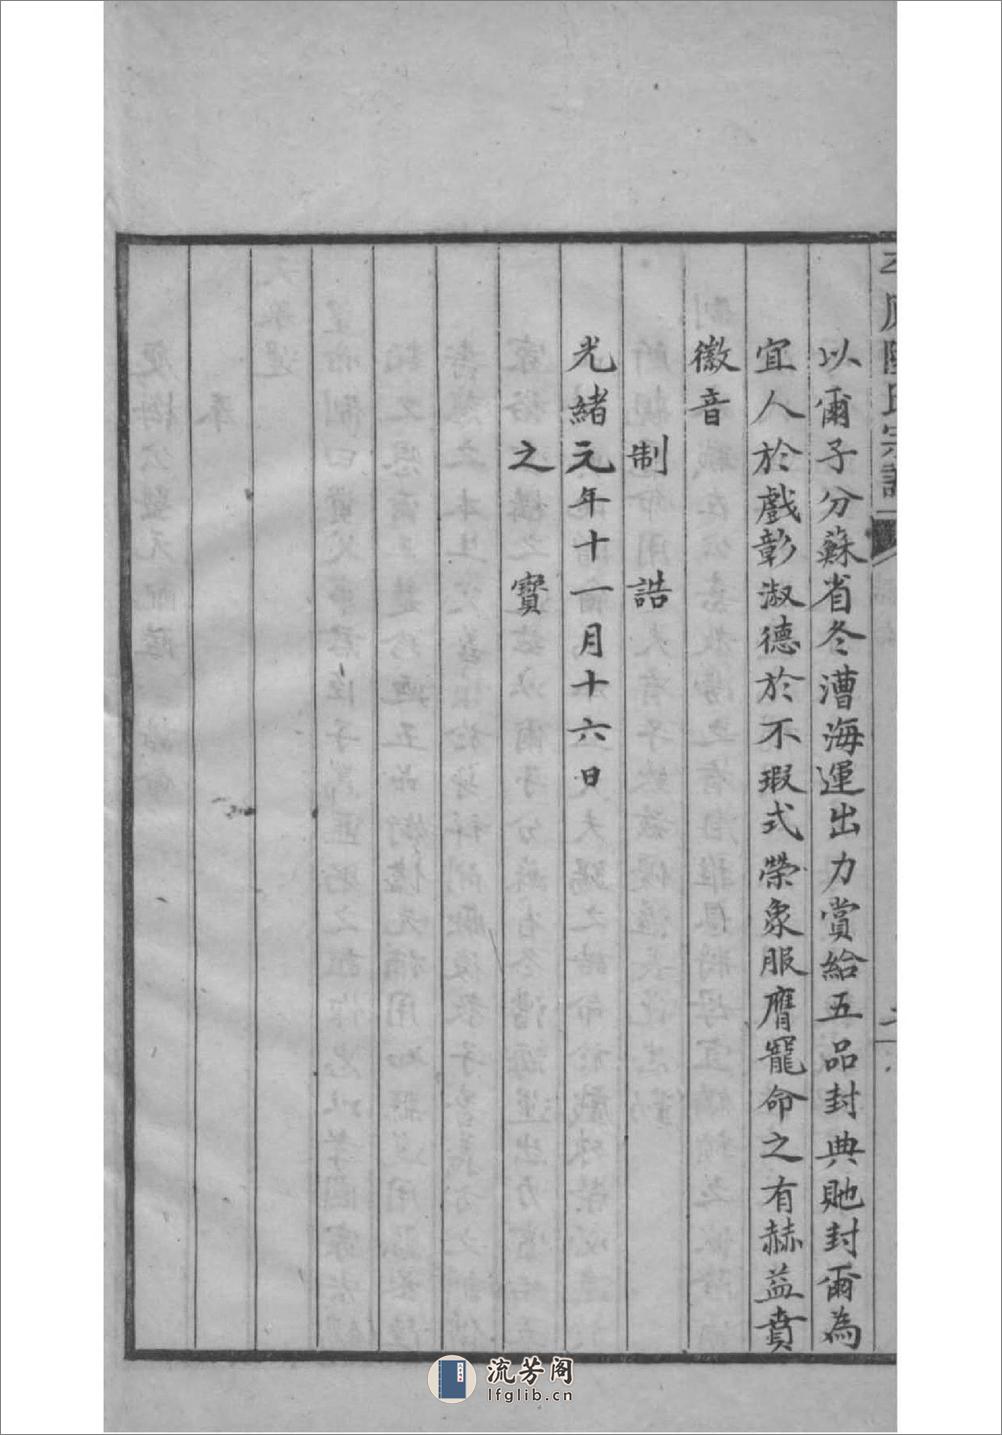 以爾子分蘇省冬漕海運出力賞給五品封典貤封爾為
宜人於戲彰淑德於不瑕式榮象服膺寵命之有赫益賁
徽音
制誥
光緒元年十一月十六日
之寶
流芳阁
lfglib.cn